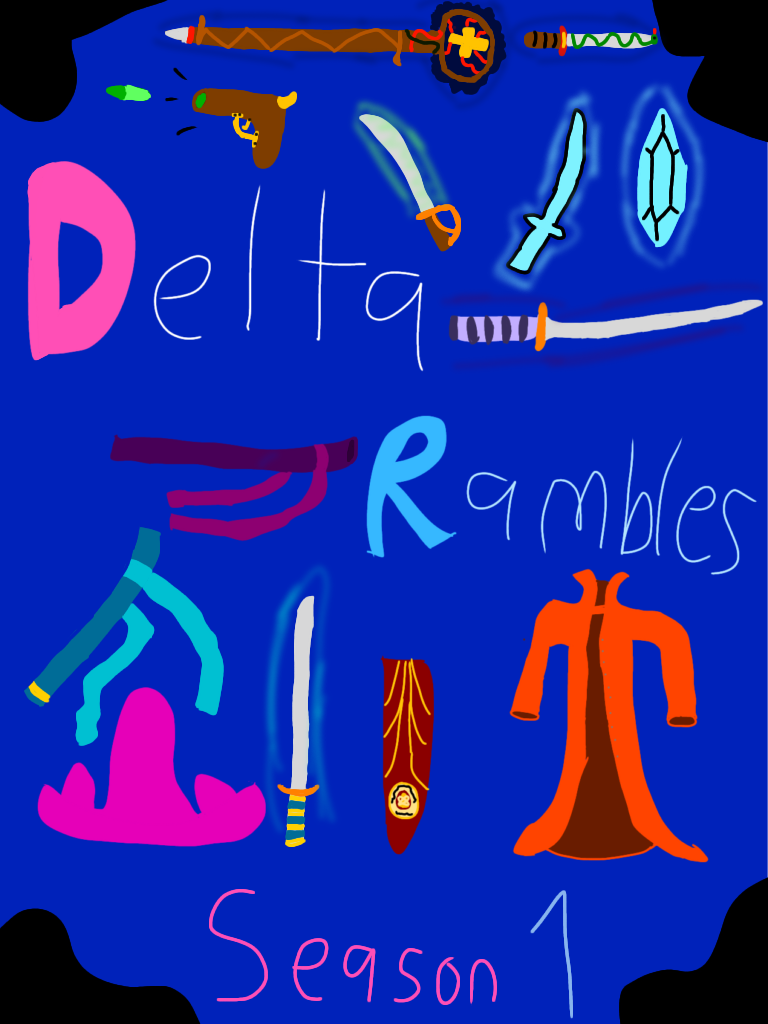 Delta
Rambles
Season 1